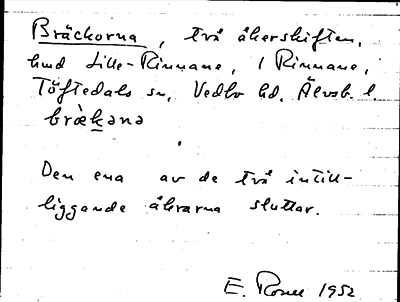 Bräckorna, två åkerskiften,
hmd Lille-Rinnane, i Rinnane,
Töftedals sn, Vedbo hd. Älvsb. l.
bræ̀kəna
Den ena av de två intill-
liggande åkrarna sluttar.
E. 1952